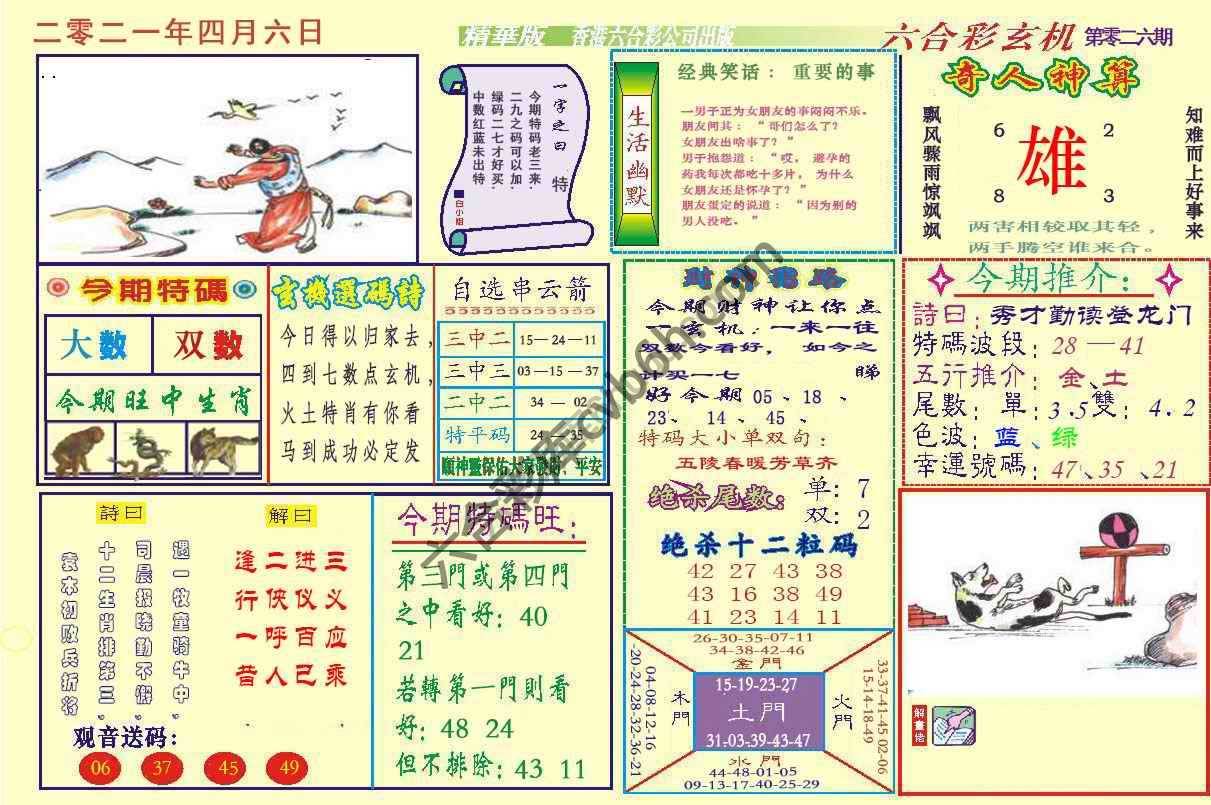 二零二一年四月六日
精華版 香港六合彩公司出版
六合彩玄机 第零二六期
一字之曰 特
今期特码老三来
二九之码可以加
绿码二七才好买
中数红蓝未出特
白小姐
生活幽默
经典笑话：重要的事
一男子正为女朋友的事闷闷不乐。
朋友问其：“哥们怎么了？
女朋友出啥事了？”
男子抱怨道：“哎，避孕的
药我每次都吃十多片，为什么
女朋友还是怀孕了？”
朋友蛋定的说道：“因为别的
男人没吃。”
奇人神算
飘风骤雨惊飒飒
6 2
雄
8 3
知难而上好事来
两害相较取其轻，
两手腾空谁来合。
今期特碼
大数 双数
今期旺中生肖
玄機選碼詩
今日得以归家去，
四到七数点玄机，
火土特肖有你看
马到成功必定发
自选串云箭
三中二 15—24—11
三中三 03—15—37
二中二 34 — 02
特平码 24 — 35
今期财神让你点
一玄机：一来一往
双数今看好， 如今之
计买一七 睇
好今期 05 、18 、
23、 14 、45 、
特码大小单双句：
五陵春暖芳草齐
绝杀尾数：
单：7
双：2
绝杀十二粒码
42 27 43 38
43 16 38 49
41 23 14 11
今期推介：
詩曰：秀才勤读登龙门
特碼波段：28 — 41
五行推介：金、土
尾數：單：3.5雙：4.2
色波：蓝、绿
幸運號碼：47、35 、21
詩曰
遇一牧童骑牛中，
司晨报晓勤不假
十二生肖排第三，
袁本初败兵折将
解曰
三义应乘
进仪百己
二侠呼人
逢行一昔
观音送码：
06 37 45 49
今期特碼旺：
第三門或第四門
之中看好：40
21
若轉第一門則看
好：48 24
但不排除：43 11
26-30-35-07-11
34-38-42-46
金門
-20-24-28-32-36-21
04-08-12-16
木門
15-19-23-27
土門
31-03-39-43-47
火門
33-37-41-45 02-06
15-14-18-49
水門
44-48-01-05
09-13-17-40-25-29
解畫佬